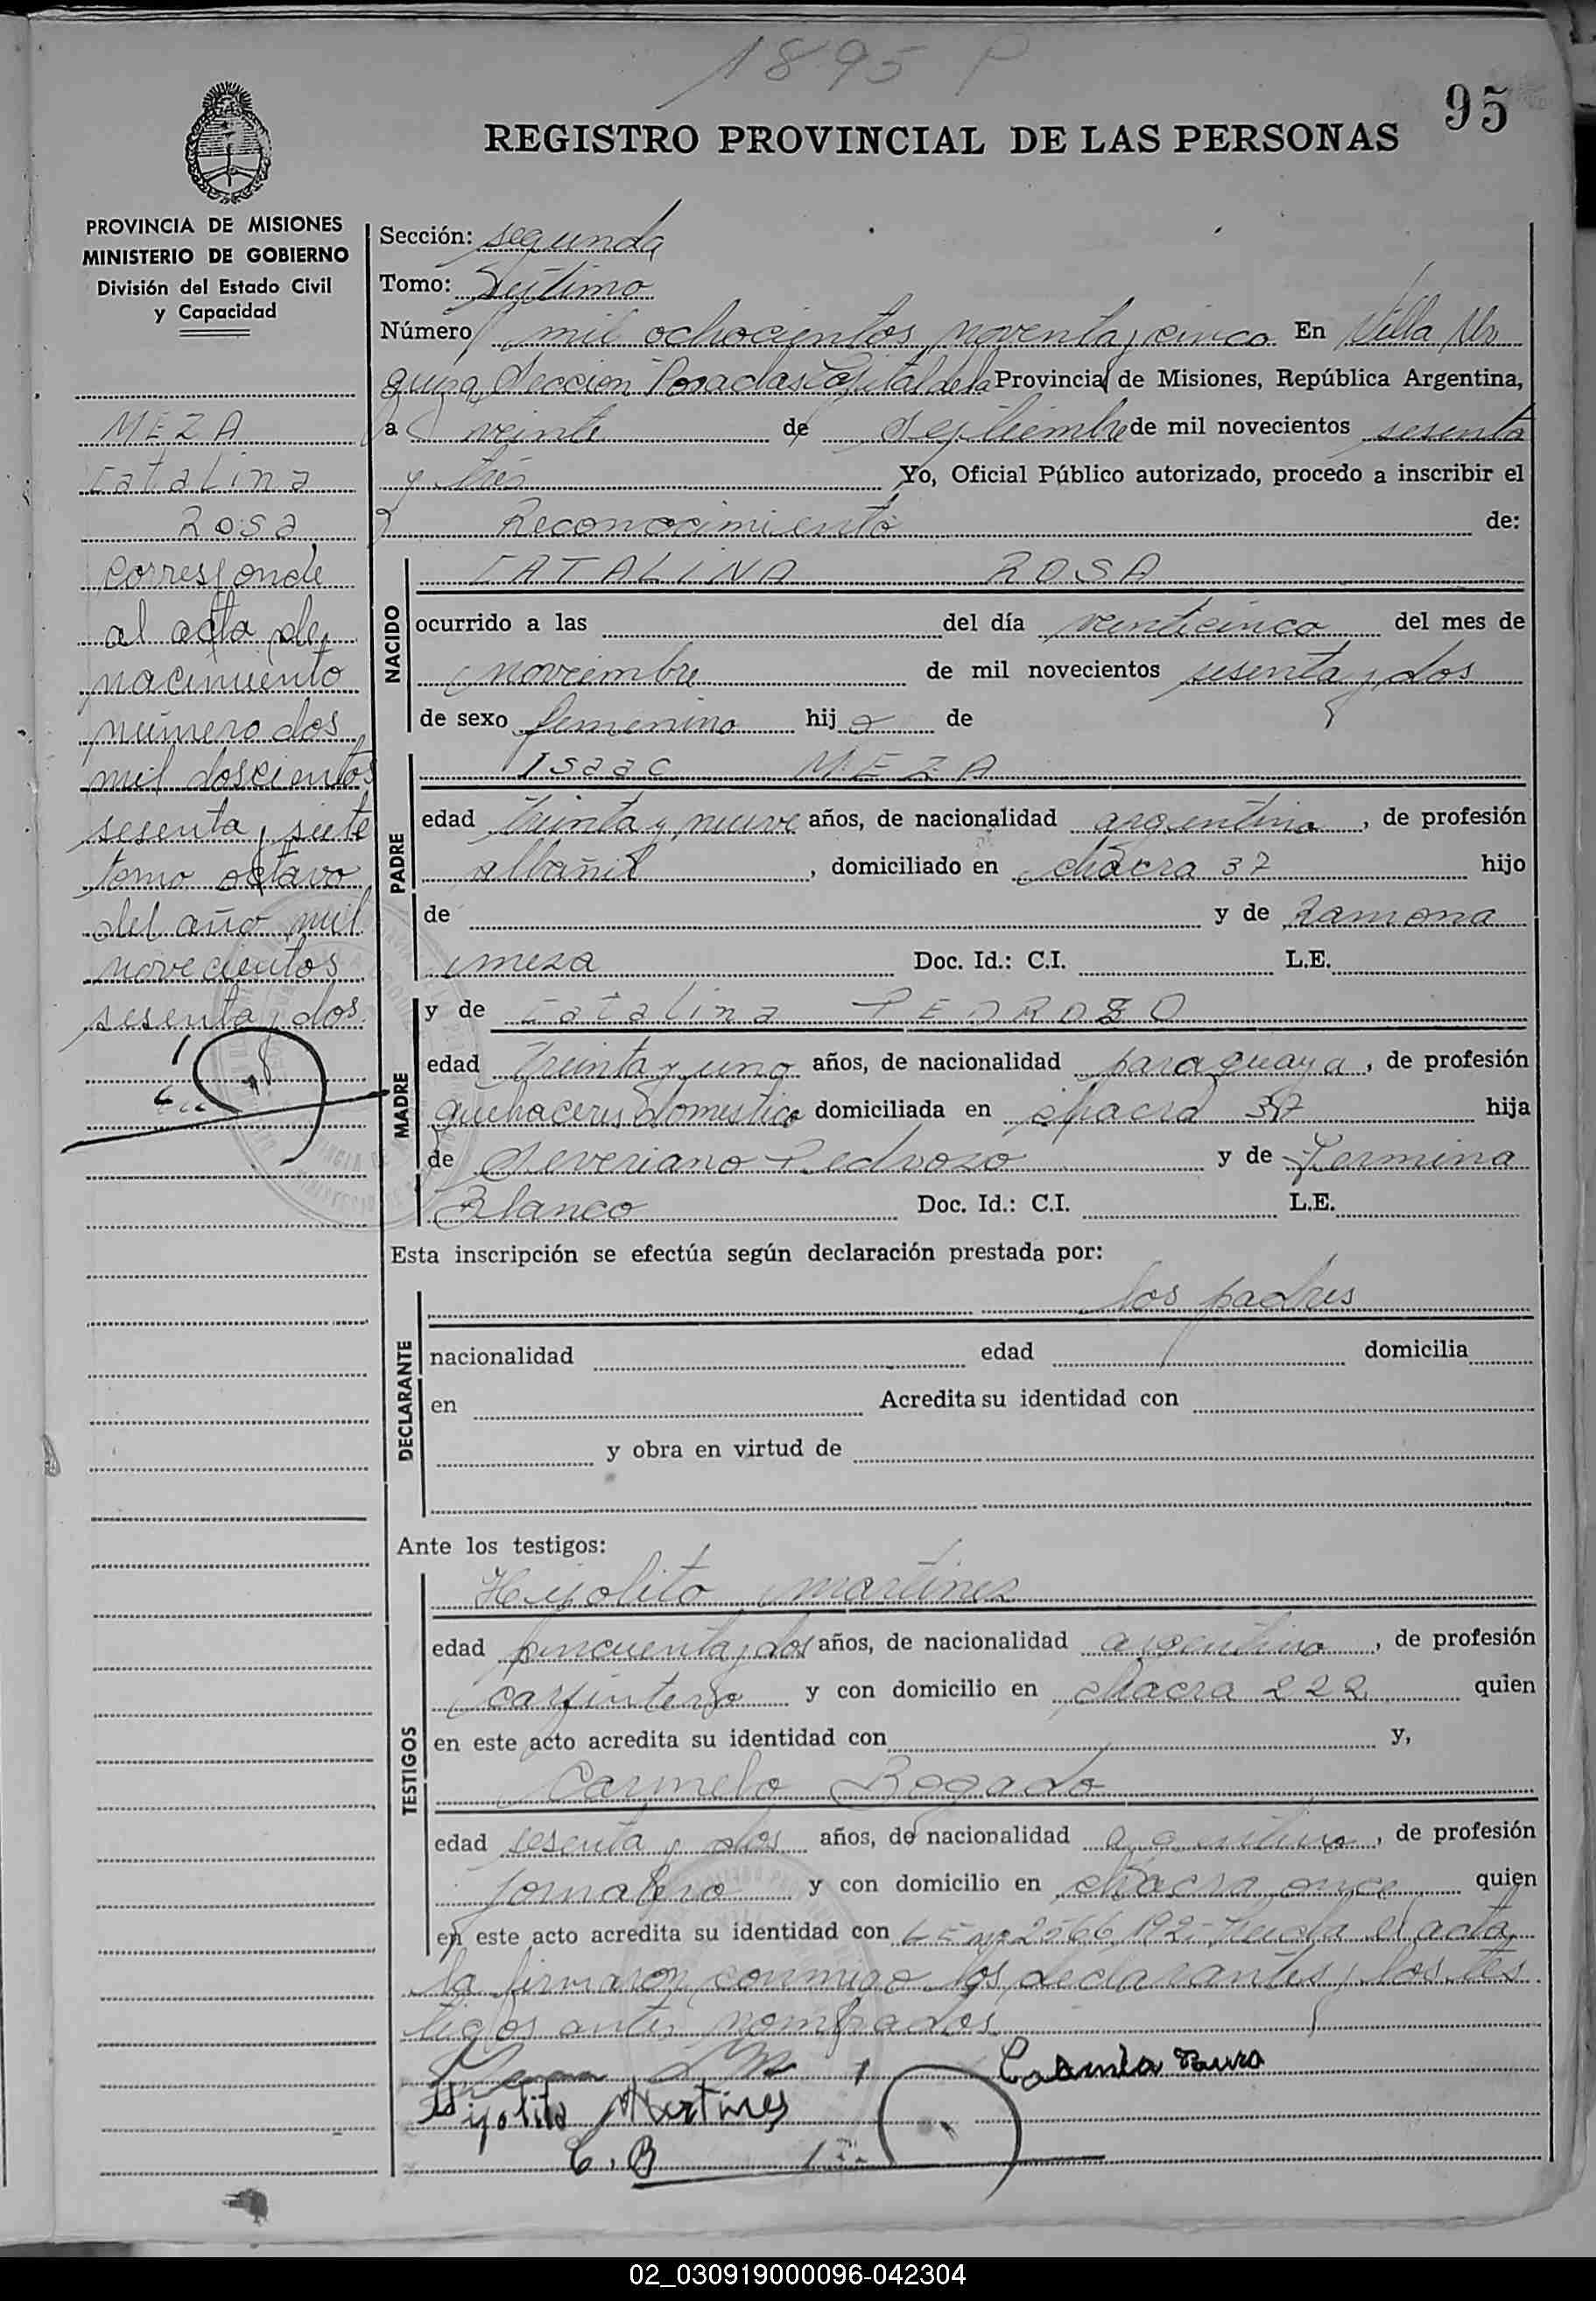 1895 P
95
REGISTRO PROVINCIAL DE LAS PERSONAS
PROVINCIA DE MISIONES
MINISTERIO DE GOBIERNO
División del Estado Civil
y Capacidad
MEZA
Catalina
Rosa
Corresponde
al acta de
nacimiento
número dos
mil doscientos
sesenta y siete
tomo octavo
del año mil
novecientos
sesenta y dos
Sección: segunda
Tomo: Septimo
Número mil ochocientos noventa y cinco En Villa Ur
quiza Seccion Posadas Capital de la Provincia de Misiones, República Argentina,
a veinte de Septiembre de mil novecientos sesenta
y tres Yo, Oficial Público autorizado, procedo a inscribir el
Reconocimiento de:
NACIDO
CATALINA ROSA
ocurrido a las del día veinticinco del mes de
noviembre de mil novecientos sesenta y dos
de sexo femenino hija de
PADRE
Isaac MEZA
edad treinta y nueve años, de nacionalidad argentina, de profesión
albañil, domiciliado en chacra 37 hijo
de y de Ramona
meza Doc. Id.: C.I. L.E.
MADRE
y de Catalina PEDROZO
edad treinta y uno años, de nacionalidad paraguaya, de profesión
quehaceres domestico domiciliada en chacra 37 hija
de Severiano Pedrozo y de Fermina
Blanco Doc. Id.: C.I. L.E.
Esta inscripción se efectúa según declaración prestada por:
DECLARANTE
los padres
nacionalidad edad domicilia
en Acredita su identidad con
y obra en virtud de
Ante los testigos:
TESTIGOS
Hipolito martinez
edad cincuenta y dos años, de nacionalidad argentino, de profesión
carpintero y con domicilio en chacra 222 quien
en este acto acredita su identidad con y,
Carmelo Bogado
edad sesenta y dos años, de nacionalidad argentina, de profesión
jornalero y con domicilio en chacra once quien
en este acto acredita su identidad con L E Nº 2566192- Leida el acta
la firmaron conmigo los declarantes y los tes
tigos antes nombrados
Hipolito Martines
C. B
02_030919000096-042304